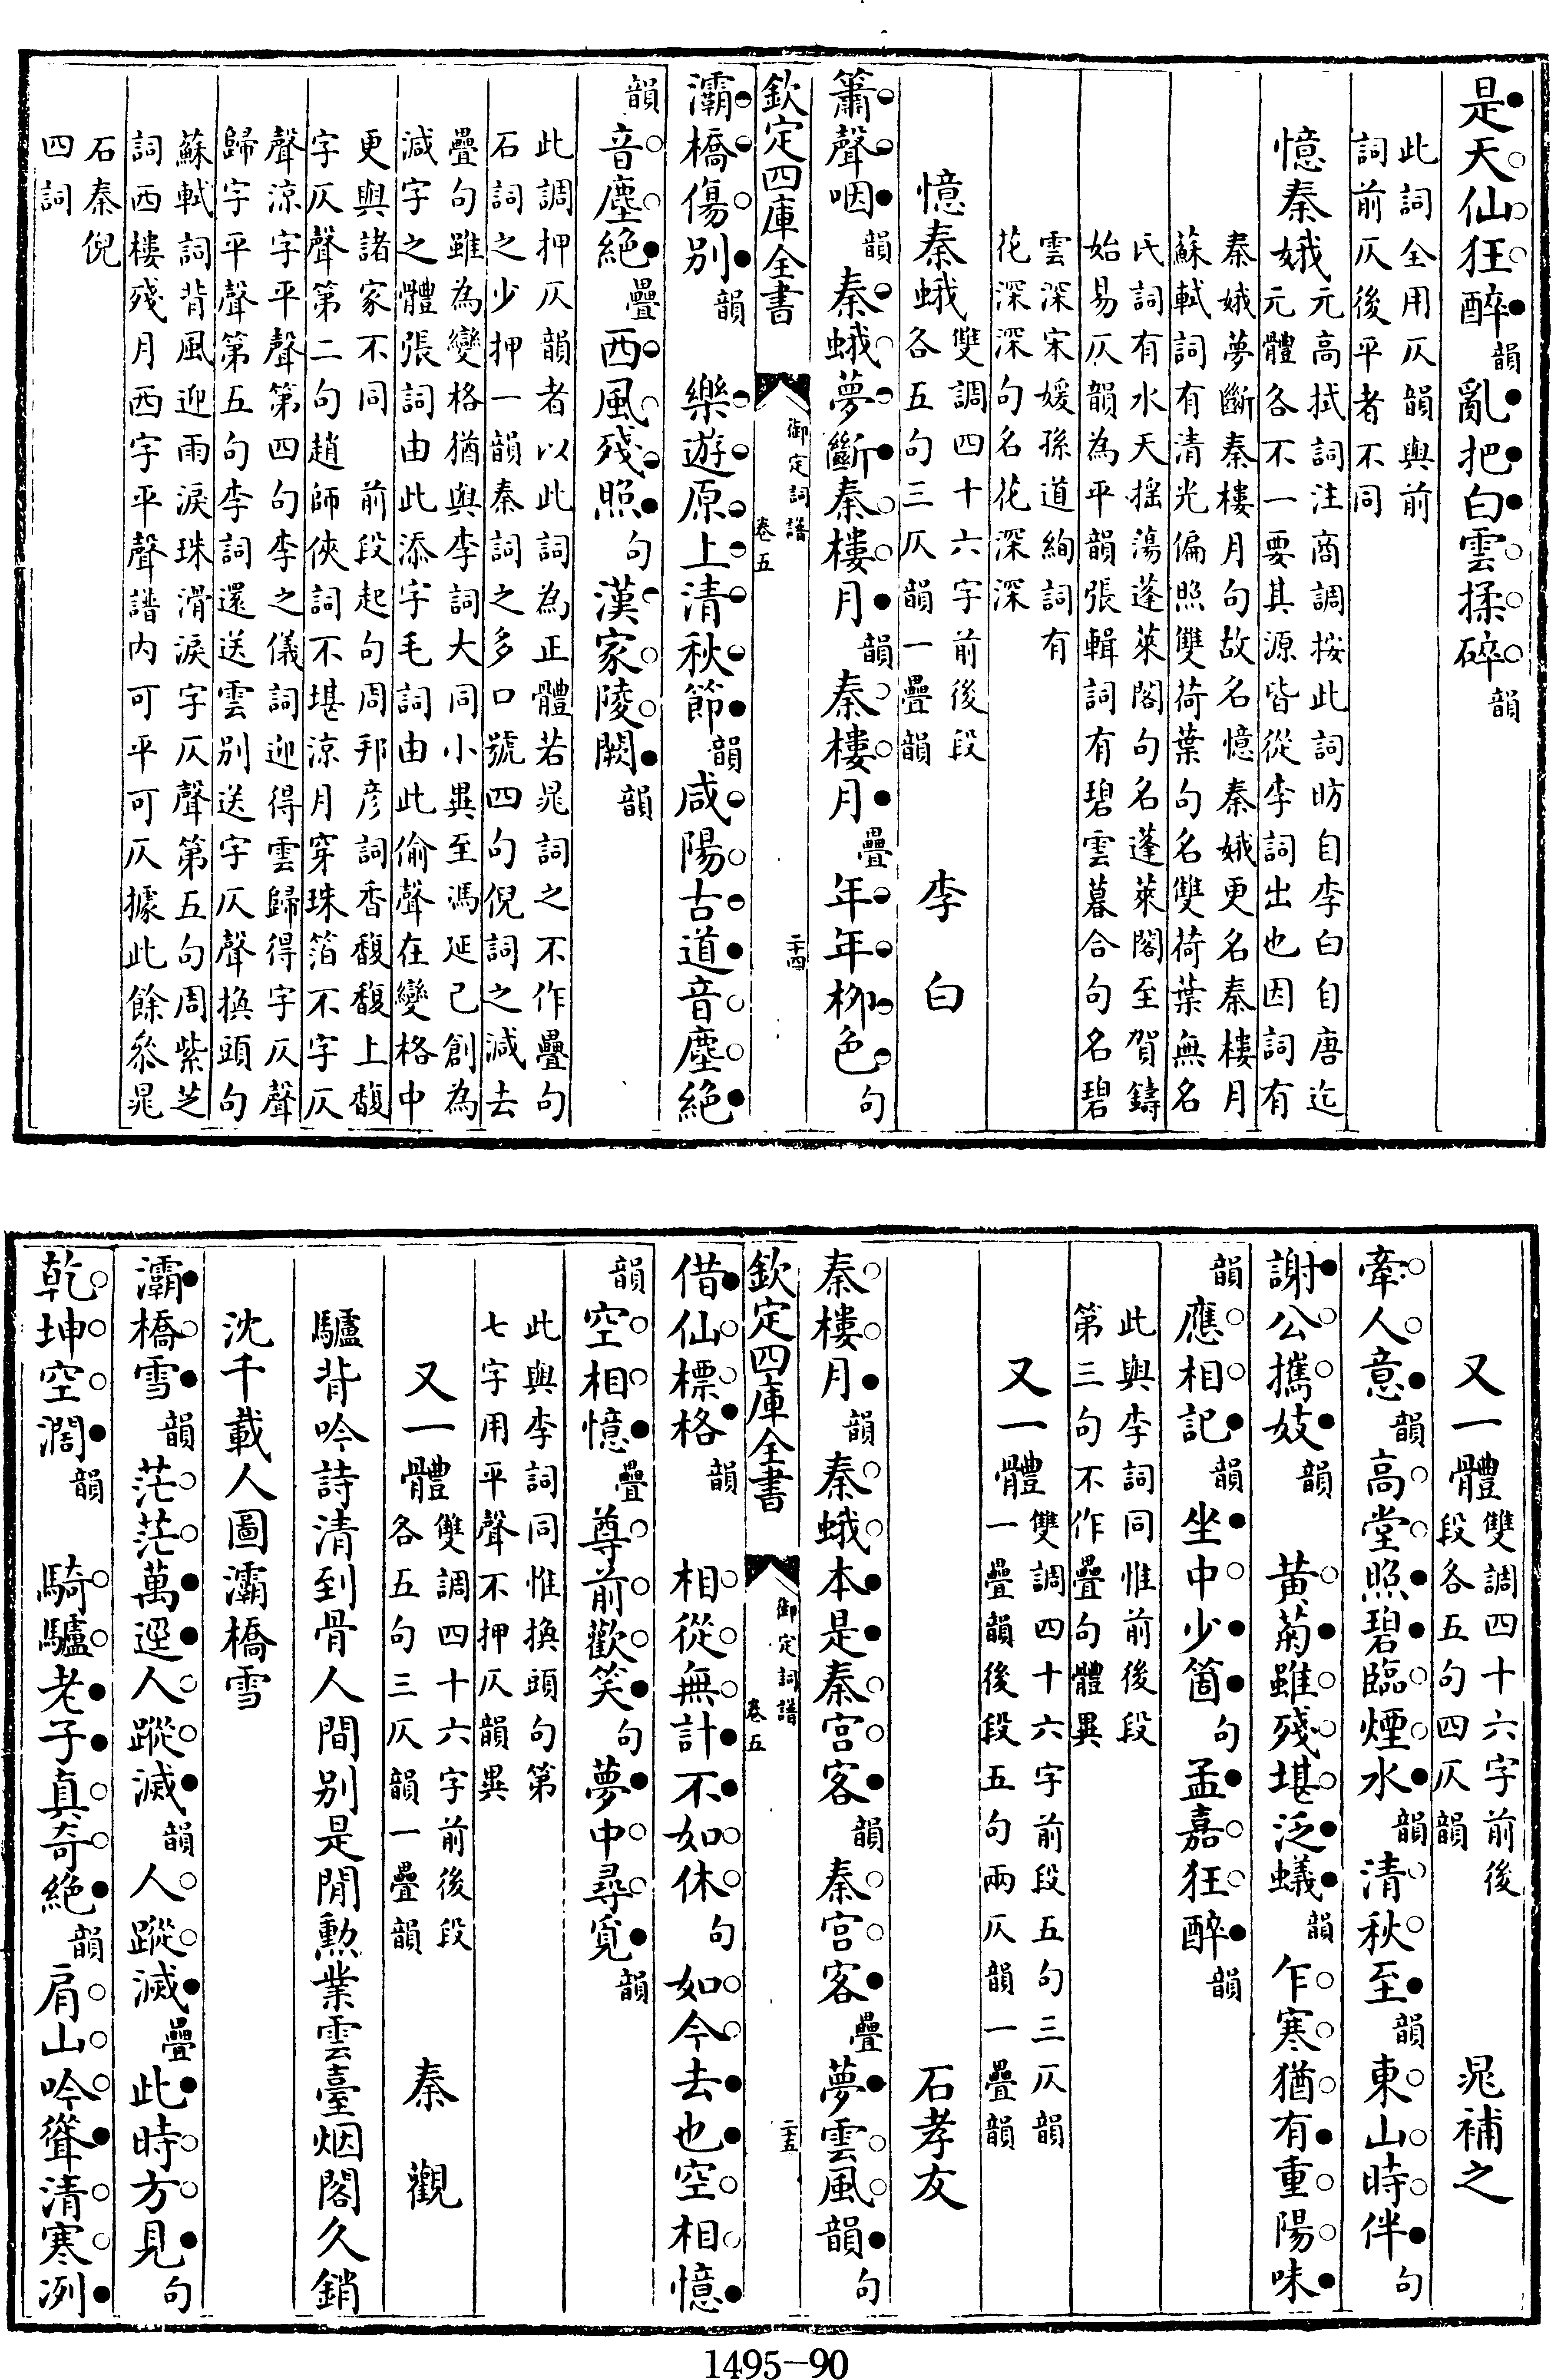 是天仙狂醉韻亂把白雲揉碎韻
此詞全用仄韻與前
詞前仄後平者不同
憶秦娥元高拭詞注商調按此詞昉自李白自唐迄
元體各不一要其源皆從李詞出也因詞有
秦娥夢斷秦樓月句故名憶秦娥更名秦樓月
蘇軾詞有清光偏照雙荷葉句名雙荷葉無名
氏詞有水天搖蕩蓬萊閣句名蓬萊閣至賀鑄
始易仄韻為平韻張輯詞有碧雲暮合句名碧
雲深宋媛孫道絢詞有
花深深句名花深深
憶秦娥雙調四十六字前後段
各五句三仄韻一疊韻
李白
簫聲咽韻秦娥夢斷秦樓月韻秦樓月疊年年柳色句
欽定四庫全書
御定詞譜
卷五
二十四
灞橋傷別韻 樂遊原上清秋節韻咸陽古道音塵絕
韻音塵絕疊西風殘照句漢家陵闕韻
此調押仄韻者以此詞為正體若晁詞之不作疊句
石詞之少押一韻秦詞之多口號四句倪詞之減去
疊句雖為變格猶與李詞大同小異至馮延己創為
減字之體張詞由此添字毛詞由此偷聲在變格中
更與諸家不同 前段起句周邦彥詞香馥馥上馥
字仄聲第二句趙師俠詞不堪涼月穿珠箔不字仄
聲涼字平聲第四句李之儀詞迎得雲歸得字仄聲
歸字平聲第五句李詞還送雲別送字仄聲換頭句
蘇軾詞背風迎雨淚珠滑淚字仄聲第五句周紫芝
詞西樓殘月西字平聲譜內可平可仄據此餘叅晁
石秦倪
四詞
又一體雙調四十六字前後
段各五句四仄韻
晁補之
牽人意韻高堂照碧臨煙水韻清秋至韻東山時伴句
謝公攜妓韻 黃菊雖殘堪泛蟻韻乍寒猶有重陽味
韻應相記韻坐中少箇句孟嘉狂醉韻
此與李詞同惟前後段
第三句不作疊句體異
又一體雙調四十六字前段五句三仄韻
一疊韻後段五句兩仄韻一疊韻
石孝友
秦樓月韻秦娥本是秦宮客韻秦宮客疊夢雲風韻句
欽定四庫全書
御定詞譜
卷五
二十五
借仙標格韻 相從無計不如休句如今去也空相憶
韻空相憶疊尊前歡笑句夢中尋覓韻
此與李詞同惟換頭句第
七字用平聲不押仄韻異
又一體雙調四十六字前後段
各五句三仄韻一疊韻
秦觀
驢背吟詩清到骨人間別是閒勲業雲臺烟閣久銷
沈千載人圖灞橋雪
灞橋雪韻茫茫萬逕人蹤滅韻人蹤滅疊此時方見句
乾坤空濶韻 騎驢老子真奇絕韻肩山吟聳清寒冽
1495-90